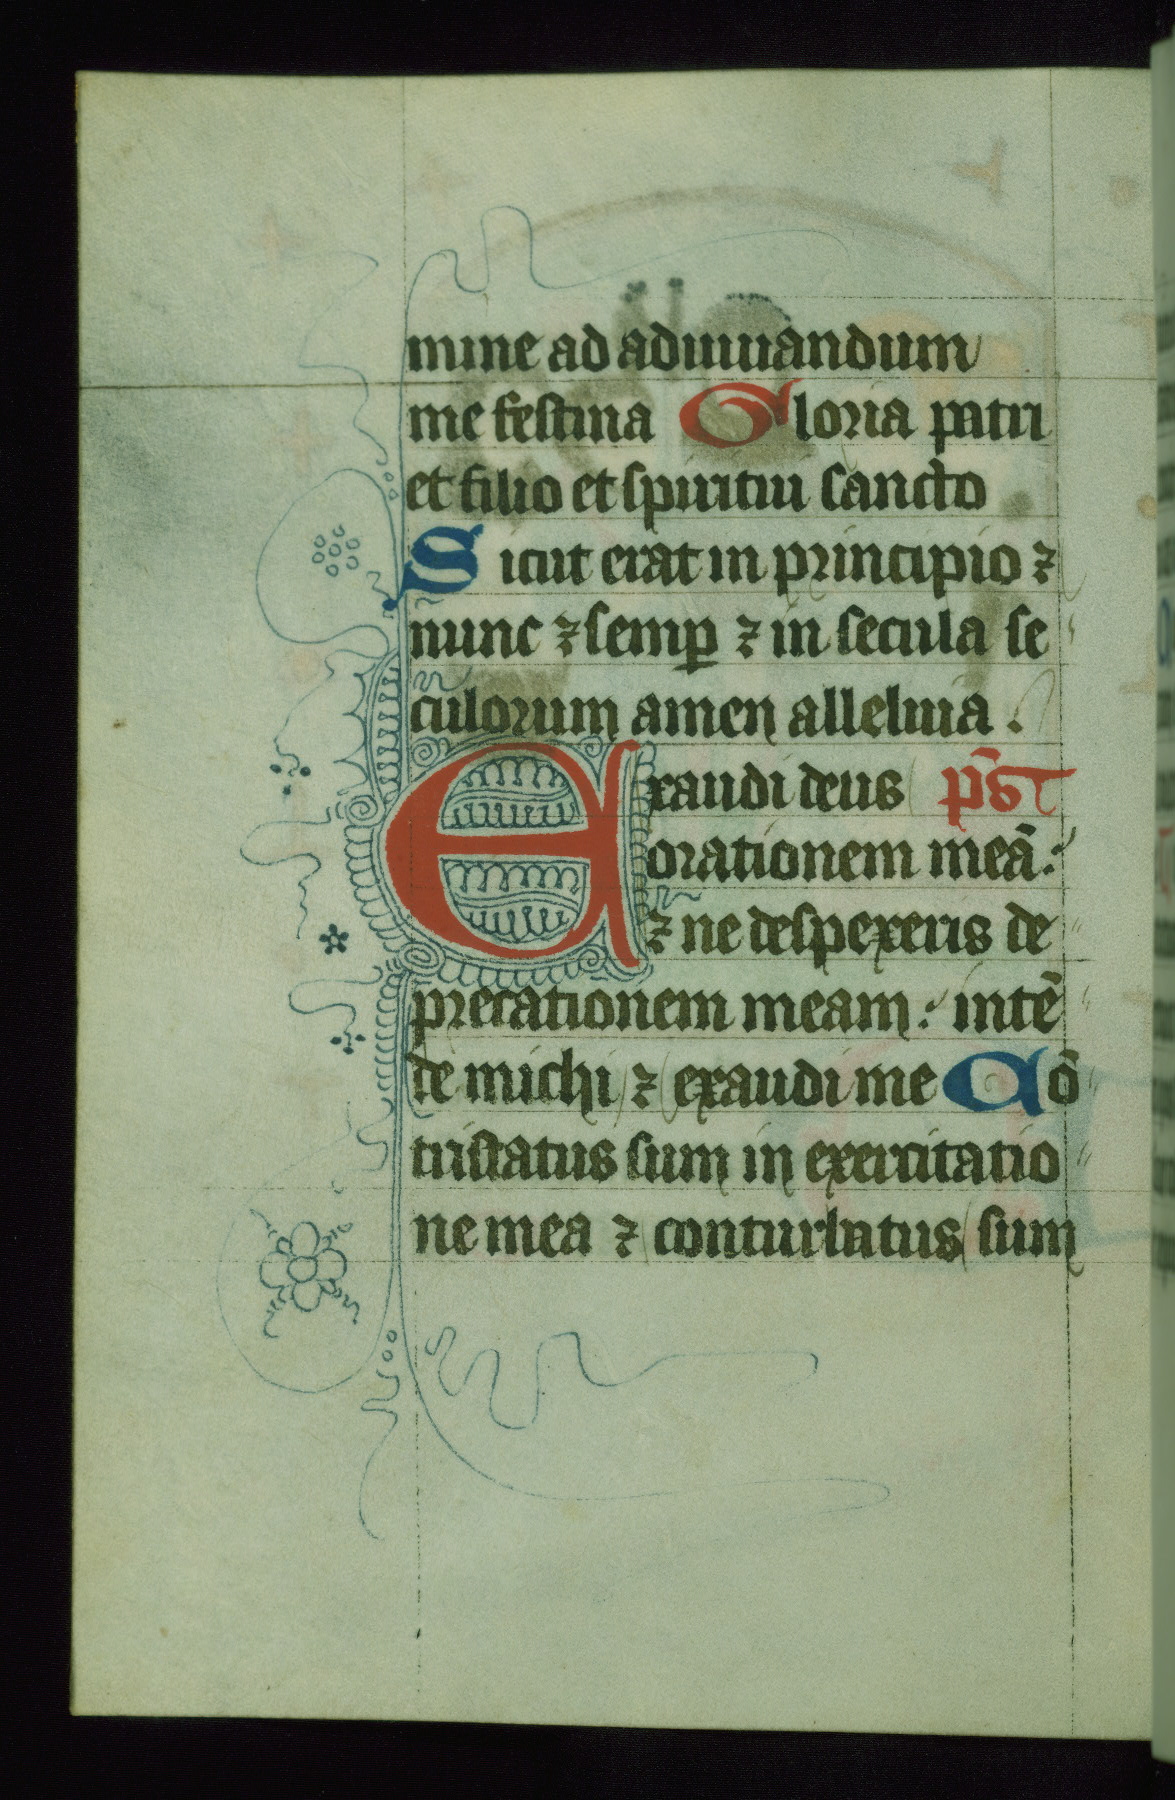 mine ad adiuuandum
me festina Gloria patri
et filio et spiritui sancto
Sicut erat in principio ⁊
nunc ⁊ semꝑ ⁊ in secula se
culorum amen alleluia .
Exaudi deus p̄s
orationem meā:
⁊ ne despexeris de
precationem meam : intē
de michi ⁊ exaudi me Cō
tristatus sum in exercitatio
ne mea ⁊ conturbatus sum